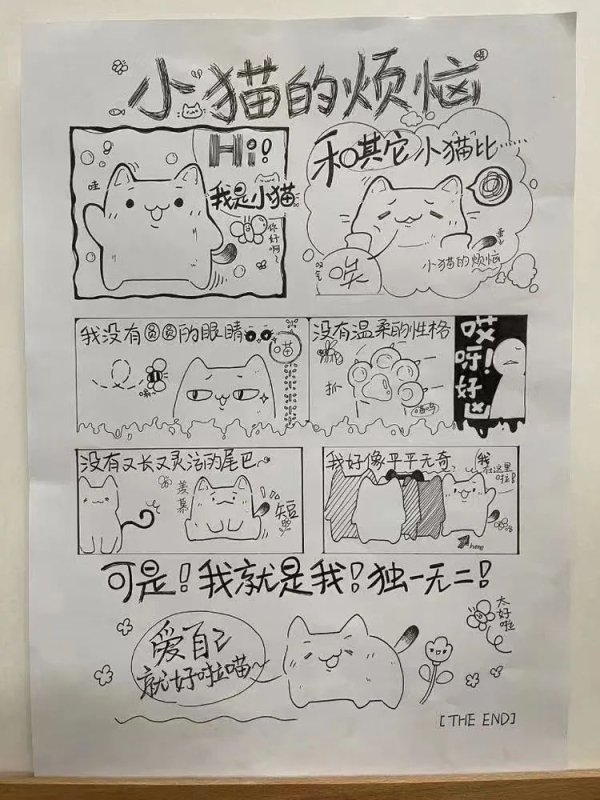 小猫的烦恼
Hi!
我是小猫
哇
你好啊~
和其它小猫比……
唉
小猫的烦恼
我没有圆圆的眼睛
喵
没有温柔的性格
抓
哎呀!好凶
没有又长又灵活的尾巴
羡慕
短
我好像平平无奇
我在这里啦!
here
可是!我就是我!独一无二!
爱自己
就好啦喵~
太好啦
[THE END]